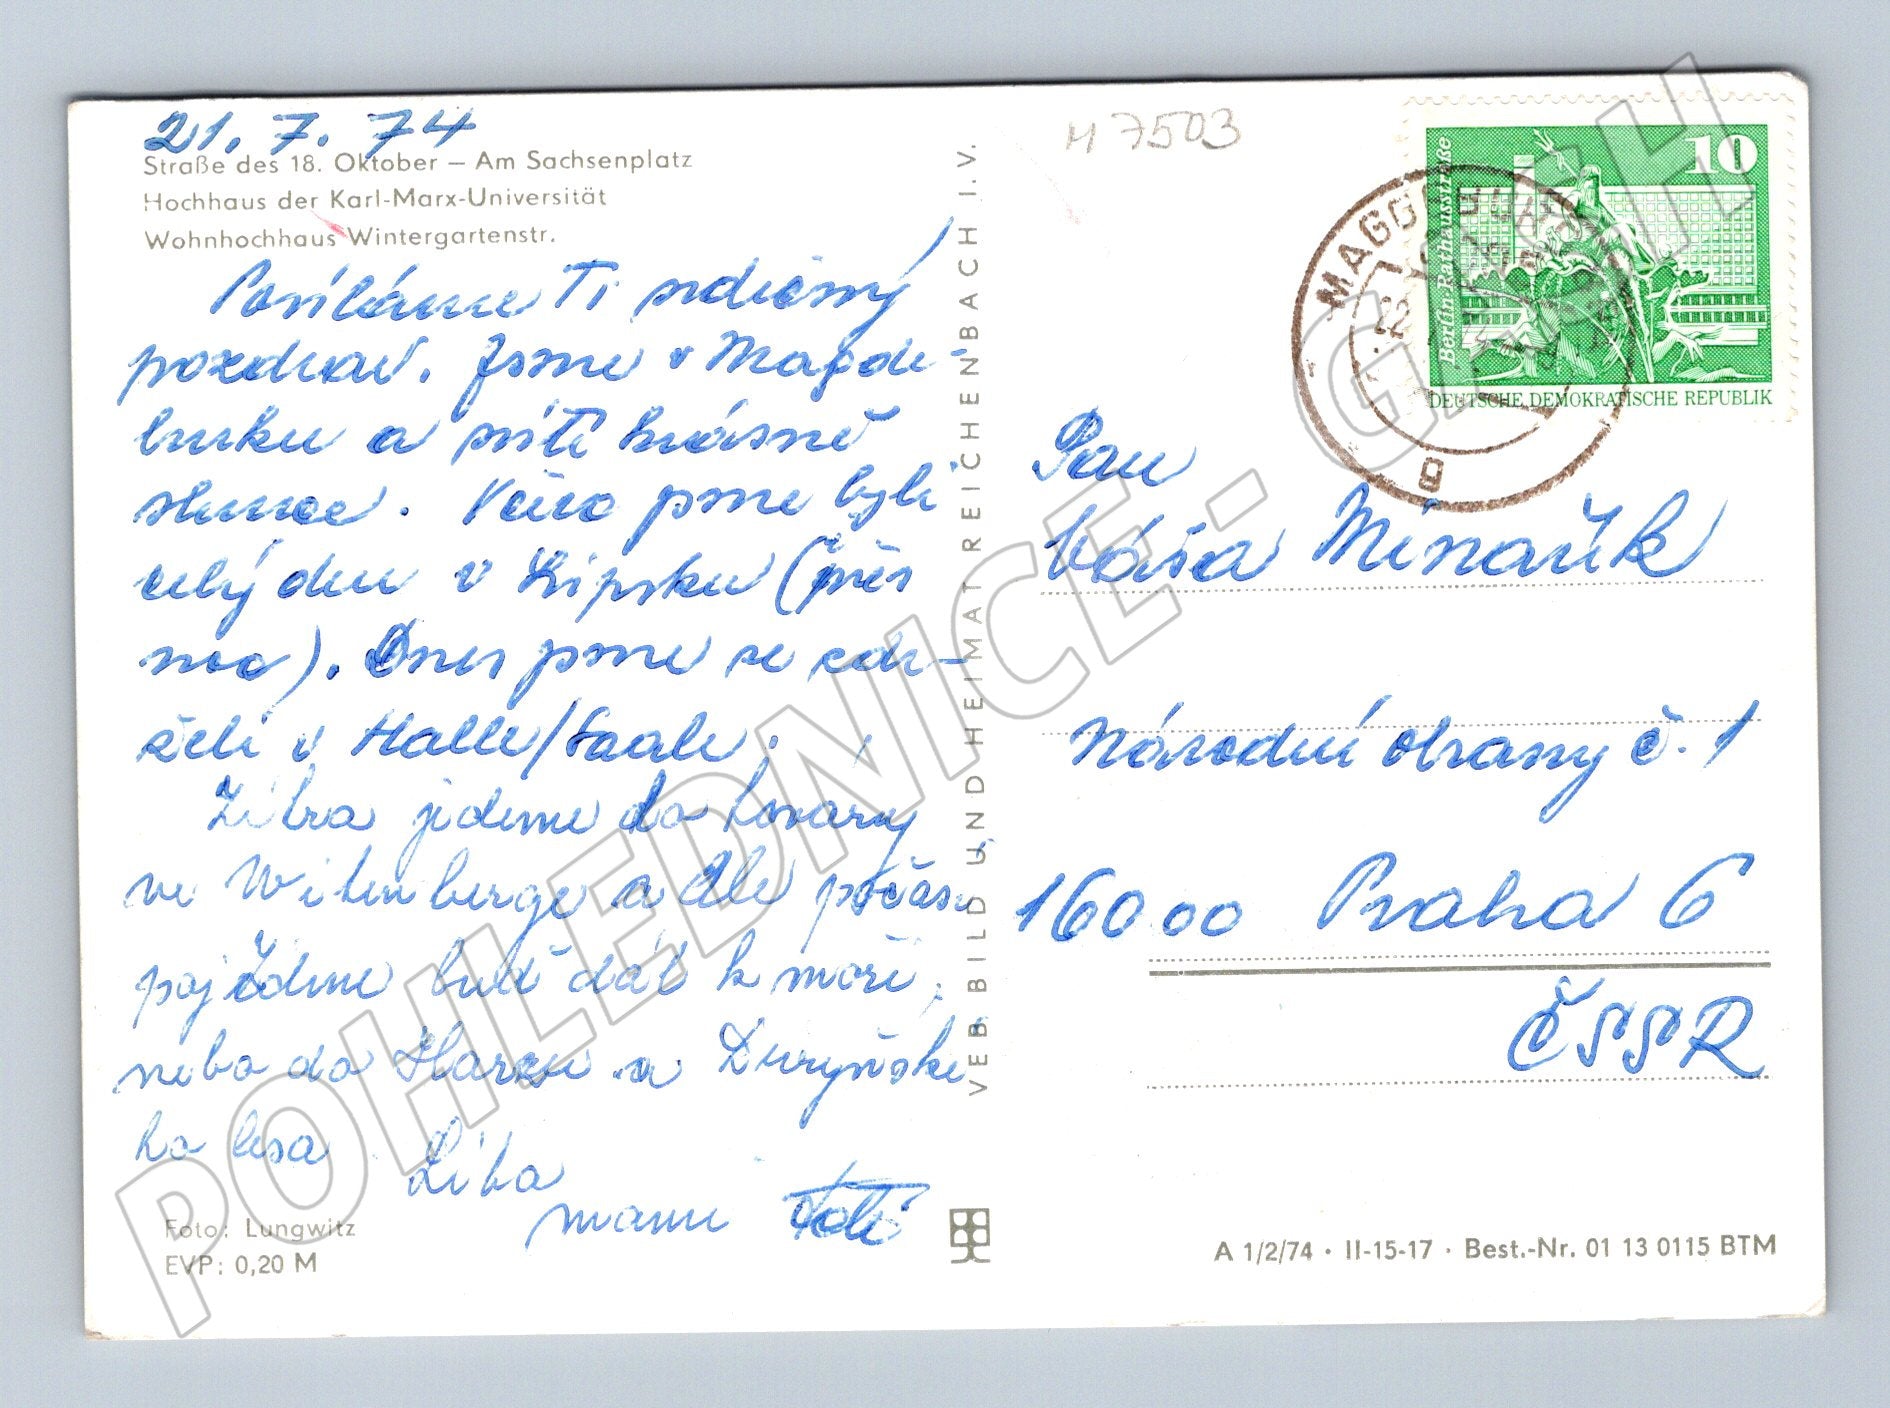 21. 7. 74
Straße des 18. Oktober – Am Sachsenplatz
Hochhaus der Karl-Marx-Universität
Wohnhochhaus Wintergartenstr.
Posíláme Ti srdečný
pozdrav. Jsme v Magde-
burku a svítí krásně
slunce. Včera jsme byli
celý den v Lipsku (přes
noc). Dnes jsme se zdr-
želi v Halle/Saale.
Zítra jedeme do továrny
ve Witenberge a dle počasí
pojedeme buď dál k moři,
nebo do Harzu a Duryňské-
ho lesa
Liba
mami
Foto: Lungwitz
EVP: 0,20 M
VEB BILD UND HEIMAT REICHENBACH I. V.
M 7503
10
Berlin-Rathausstraße
DEUTSCHE DEMOKRATISCHE REPUBLIK
g
Pan
Váša Minařík
Národní obrany č. 1
160 00 Praha 6
ČSSR
A 1/2/74 · II-15-17 · Best.-Nr. 01 13 0115 BTM
POHLEDNICE - GASH